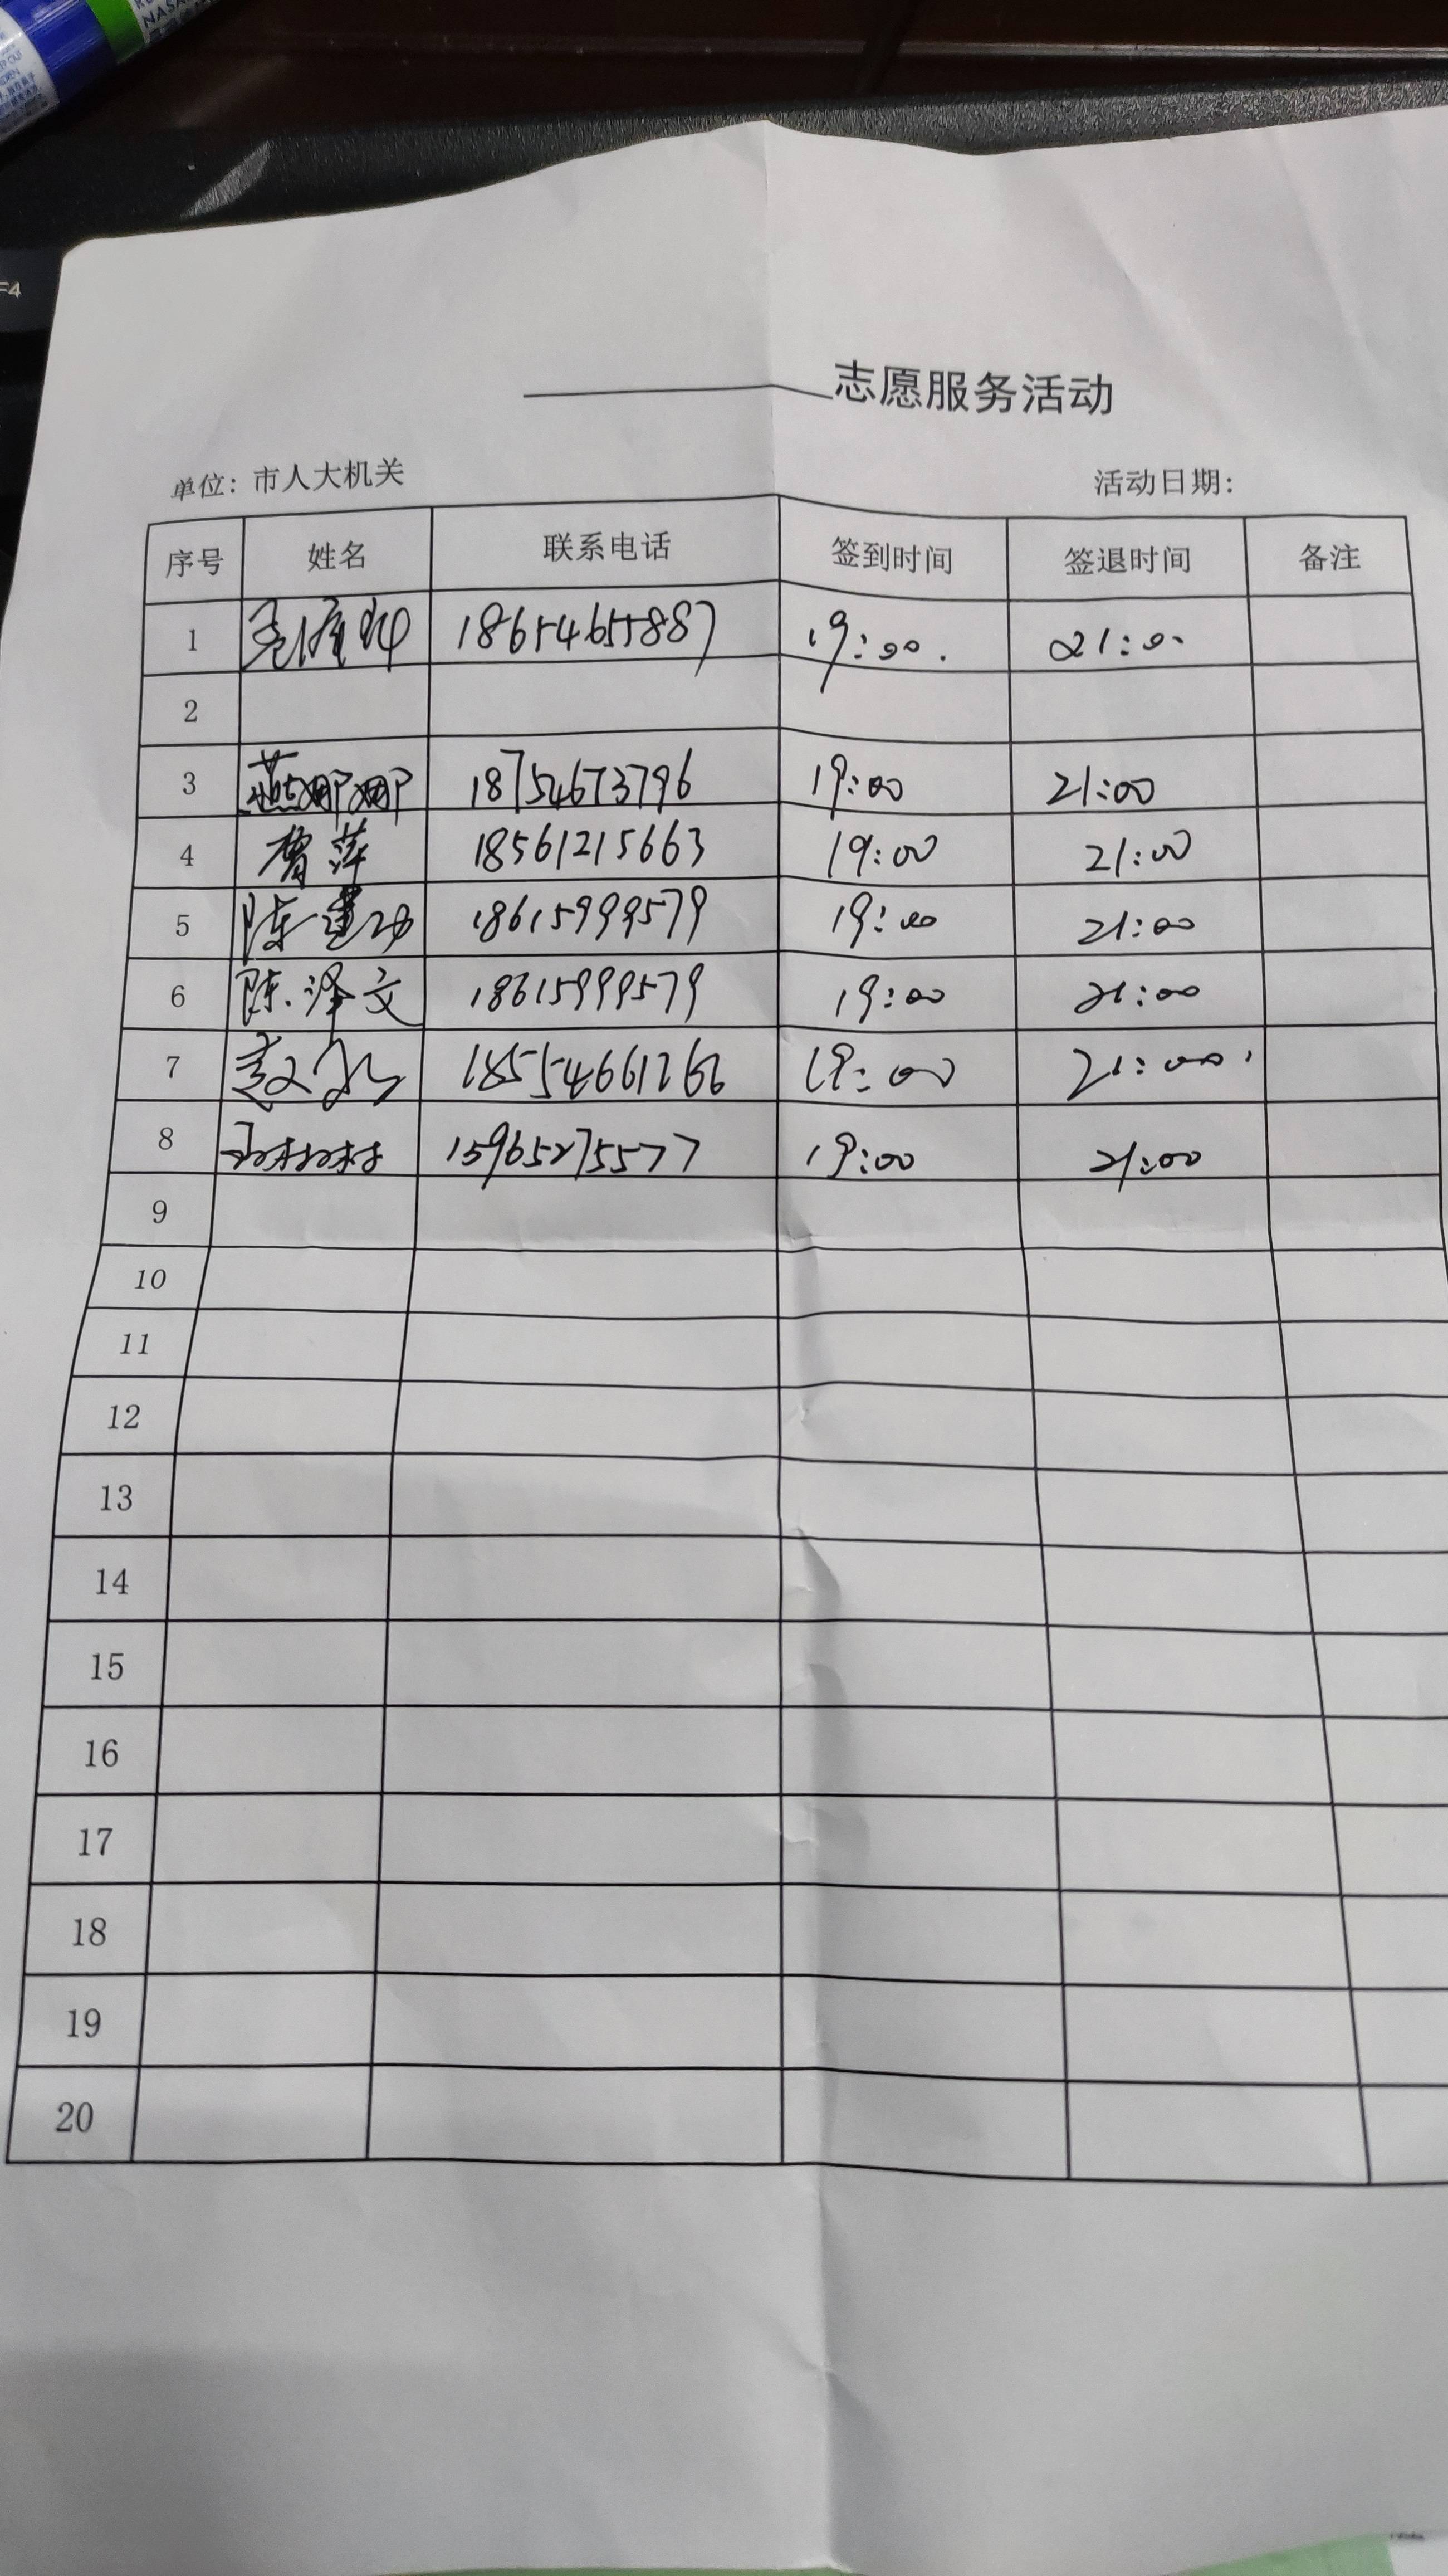 NASA
F4
志愿服务活动
单位：市人大机关 活动日期：
序号 姓名 联系电话 签到时间 签退时间 备注
1 18654655887 19:00. 21:00
2
3 燕娜娜 18754673796 19:00 21:00
4 曹萍 18561215663 19:00 21:00
5 陈建功 18615999579 19:00 21:00
6 陈泽文 18615999579 19:00 21:00
7 18554661266 19:00 21:00
8 15965275577 19:00 21:00
9
10
11
12
13
14
15
16
17
18
19
20